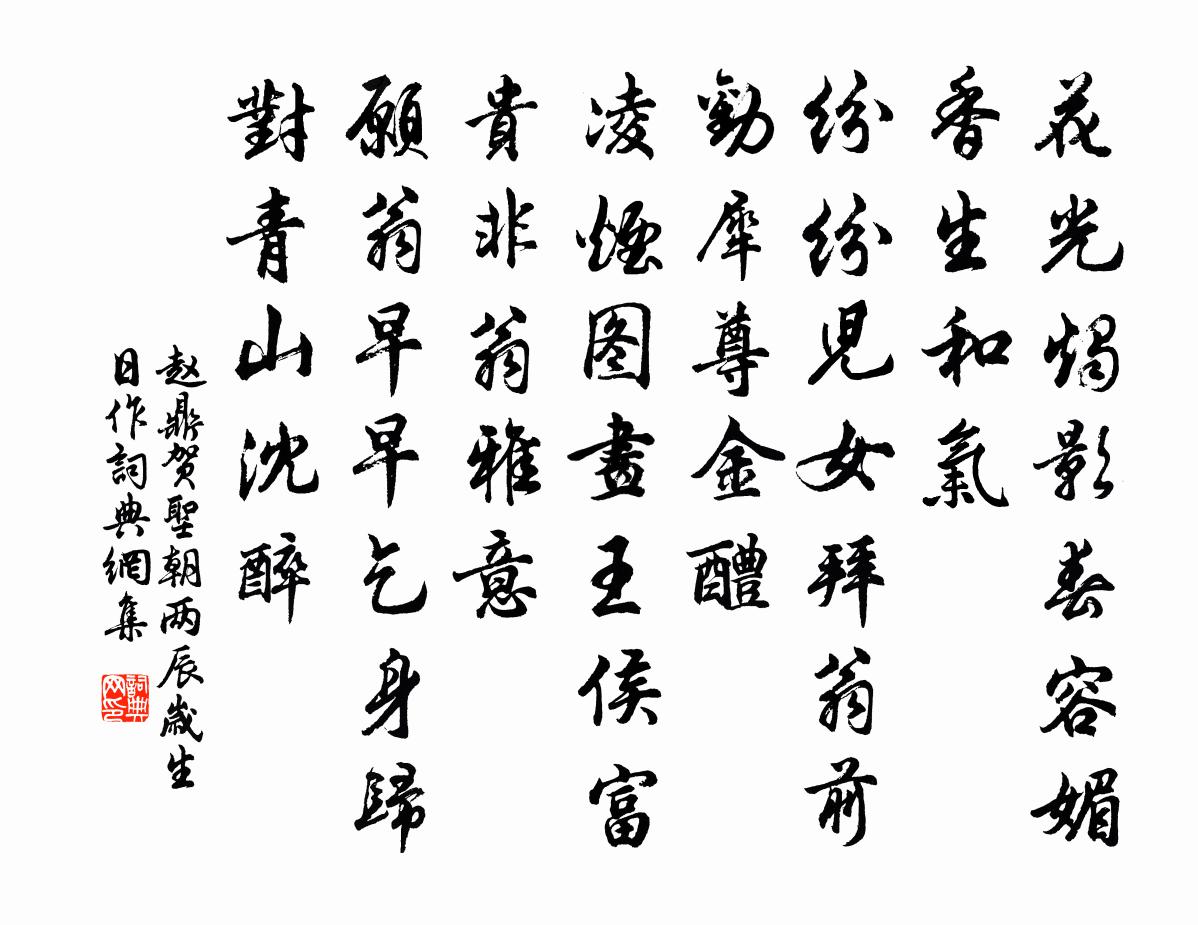 花光燭影春容媚
香生和氣
紛紛兒女拜翁前
勸犀尊金醴
凌煙图畫王侯富
貴非翁雅意
願翁早早乞身歸
對青山沈醉
赵鼎贺聖朝两辰歲生
日作詞典網集
詞典网印